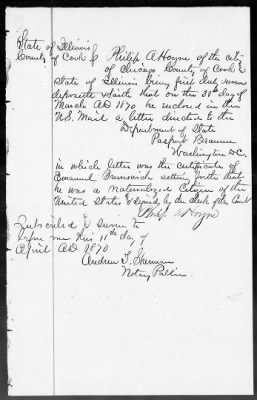 State of Illinois
County of Cook
Philip A Hoyne of the city
of Chicago County of Cook &
State of Illinois being first duly sworn
deposeth & saith that on the 31st day of
March AD 1870 he enclosed in the
U.S. Mail a letter directed to the
Department of State
Passport Bureau
Washington DC.
in which letter was the certificate of
Emanuel setting forth that
he was a naturalized Citizen of the
United States & signed by the clerk of the Court
Philip A Hoyne
Subscribed & sworn to
before me this 11th day of
April AD 1870
Andrew J. Sherman
Notary Public